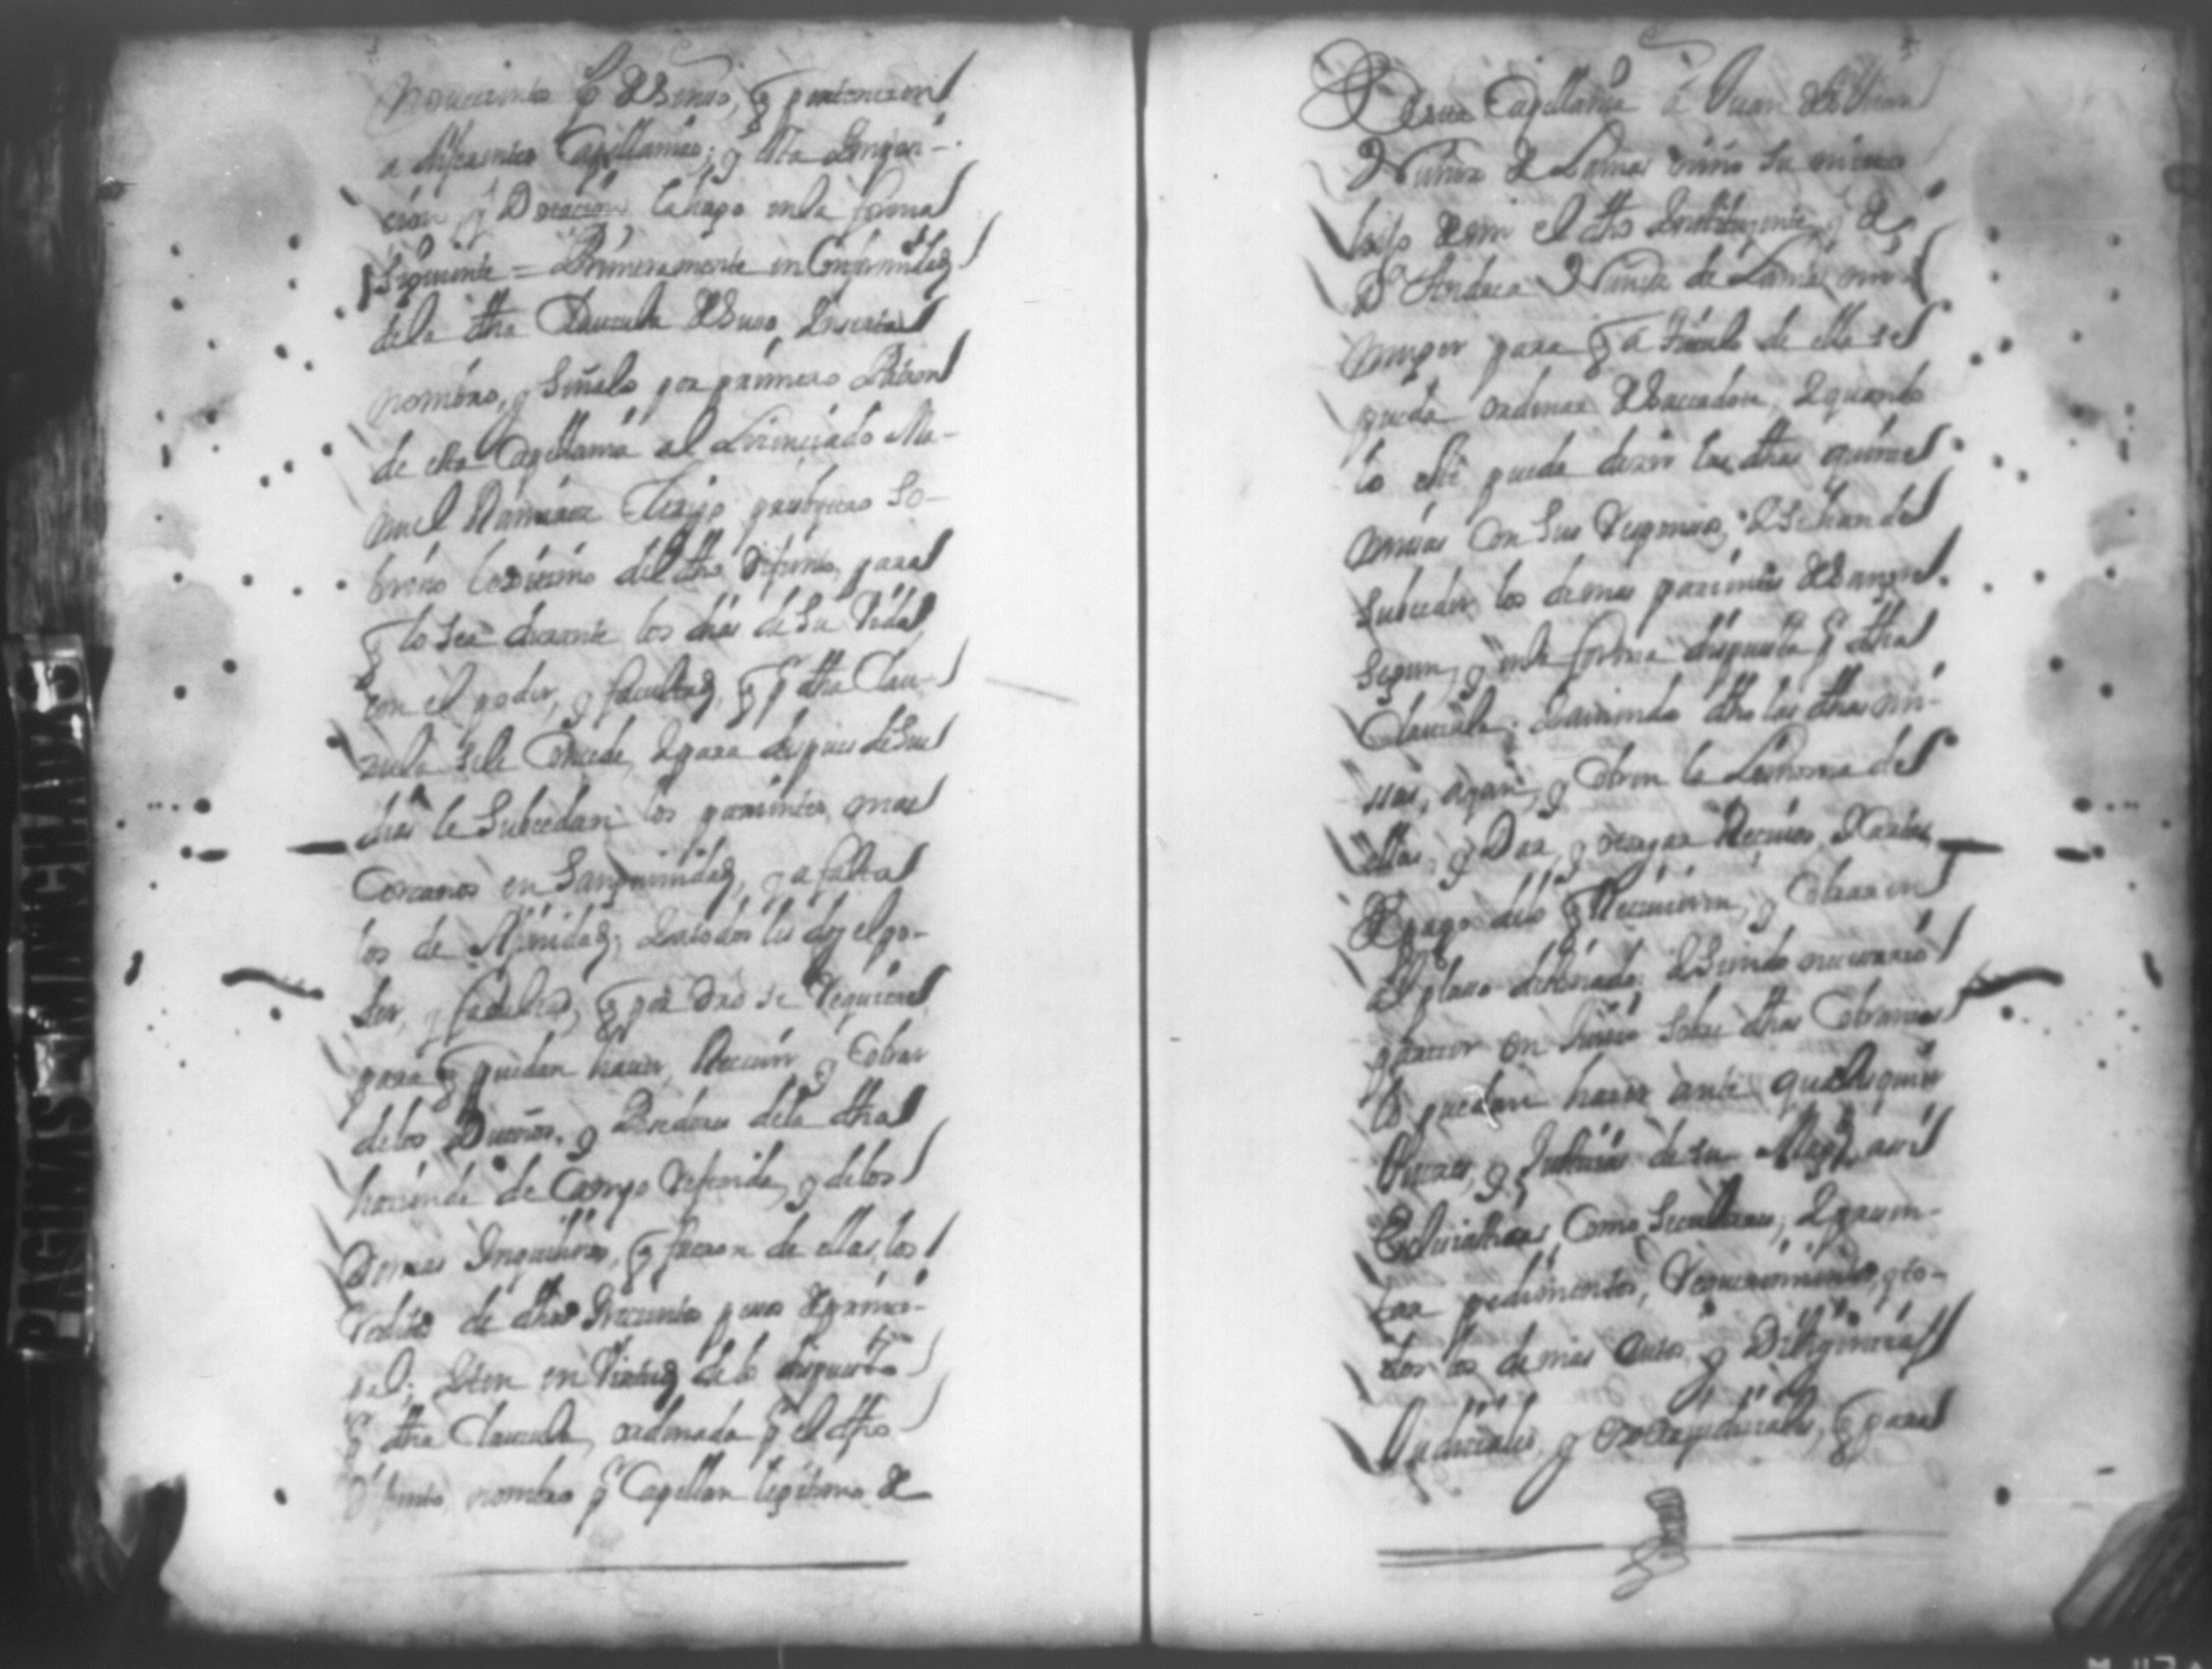 novecientos p.s de Censo, q pertenecen
a diferentes Capellanias; y esta Imposi-
cion y Dotacion la hago en la forma
siguiente = Primeramente en Conformidad
de la dha Clausula de Suso Inserta
nombro, y Señalo por primero Patron
de esta Capellania al Licenciado Ma-
nuel Ramirez Clerigo presbytero So-
brino lexitimo del dho difunto, para
q lo sea durante los dias de su Vida
con el poder, y facultad, q p.r dha Clau-
zula se le Concede, y para despues de sus
dias le Subcedan los parientes mas
Cercanos en Sanguinidad, y a falta
los de Afinidad; y a todos les doy el po-
der, y facultad, q por dro se Requiere
para q puedan haver, Recevir y Cobrar
de los Dueños, y Poseedores de la dha
hazienda de Campo referida, y de los
demas Inquilinos, q fueren de ellas, los
reditos de dhos trecientos pesos de princi-
pal; Iten en Virtud de lo dispuesto
p.r dha Clausula, ordenada p.r el dho
difunto nombro p.r Capellan legitimo de
Desta Capellania a Juan
Nuñez de Lamas niño
hijo de mi el dho Instituyente y de
D.a Andrea Nuñez de Lamas mi
muger para q a titulo de ella se
pueda ordenar de Sacerdote, y quando
lo esté pueda dezir las dhas quinze
missas Con sus Responsos, y se han de
Subceder los demas parientes de Sangre
Segun, y en la forma dispuesta p.r dha
Clausula; y haviendo dho las dhas mi-
ssas, ayan, y Cobren la Limosna de
ellas, y Dar, y otorgar Recivos, y Cartas
de pago de lo q Recivieren, y Cobraren
al plazo destinado y Siendo necessario
parecer en Juicio sobre dhas Cobranzas
lo puedan hazer ante qualesquier
Juezes, y Justicias de su Mag.d assi
Eclesiasticas, Como Seculares; y presen-
tar pedimentos, Requerimientos, y to-
dos los demas autos, y Diligencias
Judiciales, y extrajudiciales, q para
PAGINAS MANCHADAS